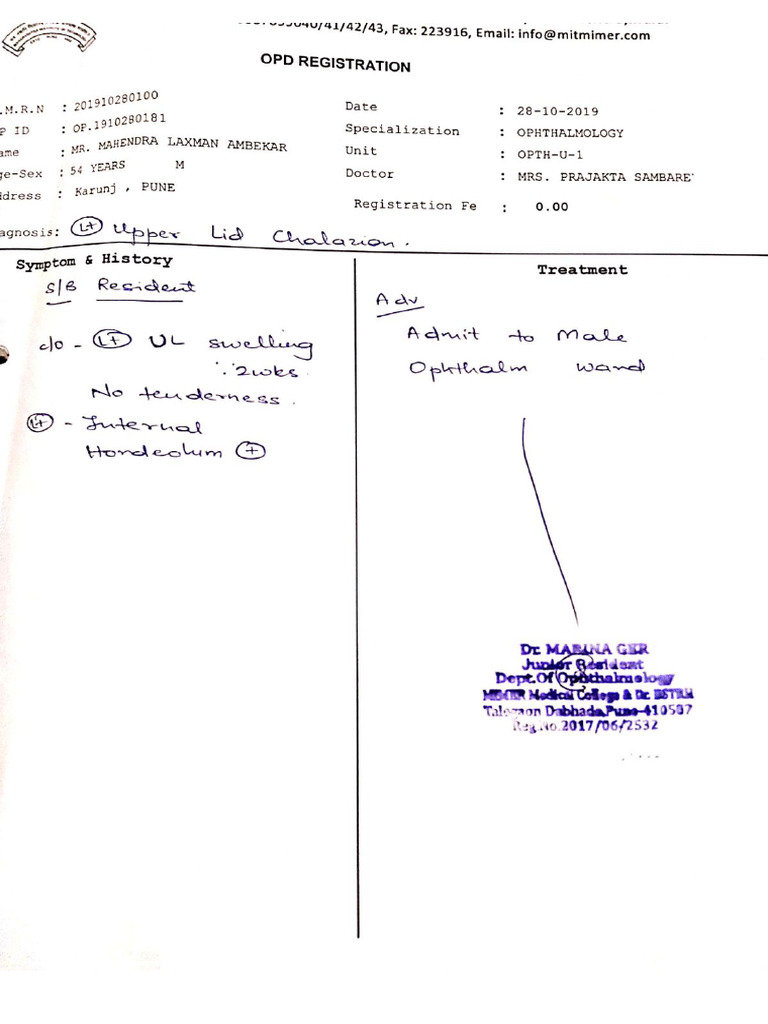 /41/42/43, Fax: 223916, Email: info@mitmimer.com
OPD REGISTRATION
.M.R.N : 201910280100
P ID : OP.1910280181
ame : MR. MAHENDRA LAXMAN AMBEKAR
ge-Sex : 54 YEARS M
ddress : Karunj , PUNE
Date : 28-10-2019
Specialization : OPHTHALMOLOGY
Unit : OPTH-U-1
Doctor : MRS. PRAJAKTA SAMBARE
Registration Fe : 0.00
agnosis: Lt Upper Lid Chalazion.
Symptom & History
S/B Resident
c/o - Lt UL swelling
∵ 2wks.
No tenderness.
Lt - Internal
Hordeolum +
Treatment
Adv
Admit to Male
Ophthalm ward
Dr. MABINA GER
Junior Resident
Dept.Of Ophthalmology
MIMER Medical College & Dr. BSTRH
Talegaon Dabhade,Pune-410507
Reg.No.2017/06/2532